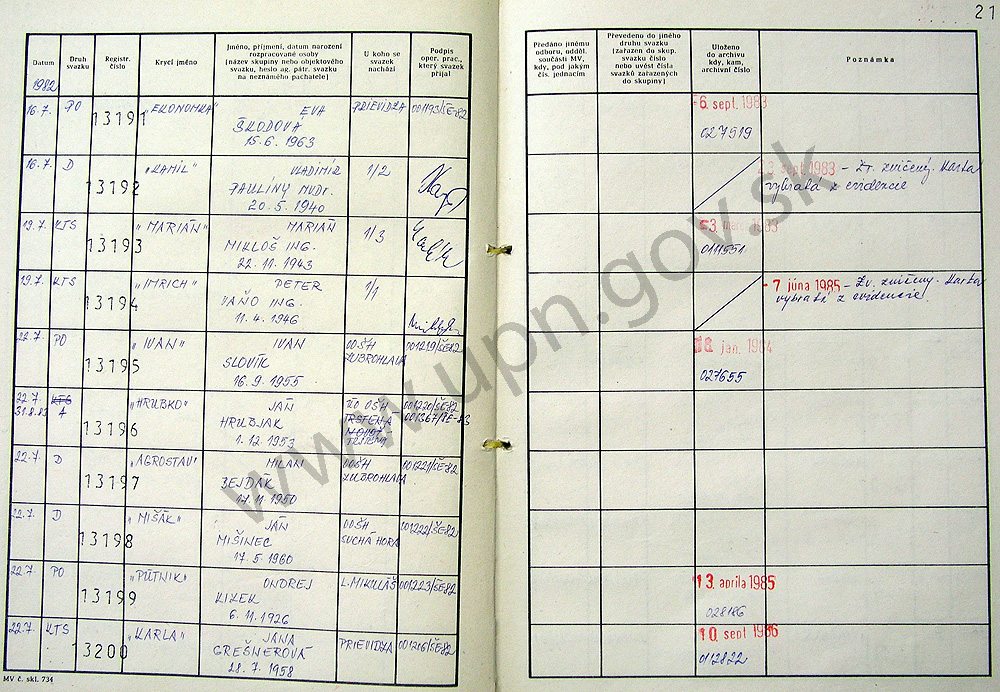 21
Datum
1982
Druh
svazku
Registr.
číslo
Krycí jméno
Jméno, příjmení, datum narození
rozpracované osoby
(název skupiny nebo objektového
svazku, heslo ag. pátr. svazku
na neznámého pachatele)
U koho se
svazek
nachází
Podpis
oper. prac.,
který svazek
přijal
Předáno jinému
odboru, odděl.
součásti MV,
kdy, pod jakým
čís. jednacím
Převedeno do jiného
druhu svazku
(zařazen do skup.
svazku číslo
nebo uvést čísla
svazků zařazených
do skupiny)
Uloženo
do archivu
kdy, kam,
archivní číslo
Poznámka
16.7. PO 13191 "EKONOMKA" EVA
ŠKODOVÁ
15.6. 1963
PRIEVIDZA 001193/ŠE-82
-6. sept. 1983
027519
16.7. D 13192 "KAMIL" VLADIMÍR
PAULÍNY MUDr.
20.5. 1940
1/2
sept. 1983 - Zv. zničený. Karta
vybratá z evidencie
19.7. KTS 13193 "MARIÁN" MARIÁN
MIKLOŠ ING.
22.11. 1943
1/3
0111551
19.7. KTS 13194 "IMRICH" PETER
VAŇO ING.
11.4. 1946
1/1
-7 júna 1985 - Zv. zničený. Karta
vybratá z evidencie
22.7. PO 13195 "IVAN" IVAN
SLOVÍK
16.9. 1955
OOŠH
ZUBROHLAVA
001219/ŠE-82
jan. 1984
027655
22.7.
31.8.83
KTS
A
13196 "HRUBKO" JÁN
HRUBJAK
1.12. 1953
OŠH
TRSTENÁ
001220/ŠE-82
22.7. D 13197 "AGROSTAV" MILAN
BEJDÁK
17.11. 1950
OOŠH
ZUBROHLAVA
001221/ŠE-82
22.7. D 13198 "MIŠÁK" JÁN
MIŠINEC
17.5. 1960
OOŠH
SUCHÁ HORA
001222/ŠE-82
22.7. PO 13199 "PÚTNIK" ONDREJ
6.11. 1926
L. MIKULÁŠ 001223/ŠE-82
13. apríla 1985
028186
22.7. KTS 13200 "KARLA" JANA
GREŠNEROVÁ
28.7. 1958
PRIEVIDZA 001216/ŠE-82
10. sept 1986
0112822
MV č. skl. 734
www.upn.gov.sk